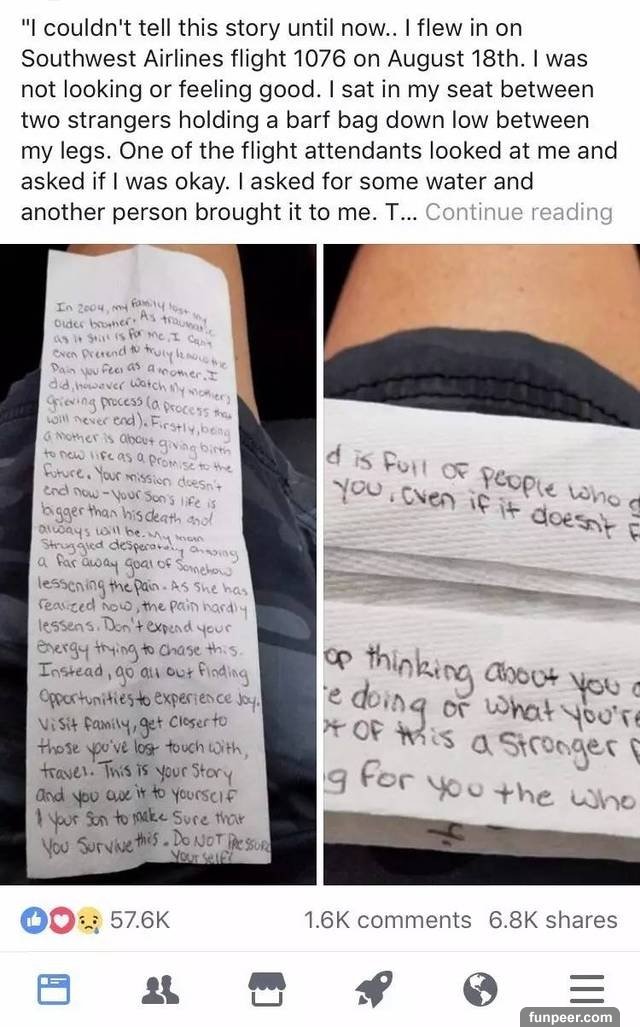 "I couldn't tell this story until now.. I flew in on
Southwest Airlines flight 1076 on August 18th. I was
not looking or feeling good. I sat in my seat between
two strangers holding a barf bag down low between
my legs. One of the flight attendants looked at me and
asked if I was okay. I asked for some water and
another person brought it to me. T... Continue reading
In 2004, my family lost my
older brother. As traumatic
as it still is for me, I can't
even pretend to truly know the
Pain you feel as a mother. I
did, however watch my mother's
grieving process (a process that
will never end). Firstly, being
a mother is about giving birth
to new life as a promise to the
future. Your mission doesn't
end now - your son's life is
bigger than his death and
always will be. My mom
Struggled desperately chasing
a far away goal of somehow
lessening the pain. As she has
realized now, the pain hardly
lessens. Don't expend your
energy trying to chase this.
Instead, go all out finding
Opportunities to experience Joy.
Visit family, get closer to
those you've lost touch with,
travel. This is your story
and you owe it to yourself
& your son to make sure that
you survive this. DO NOT PRESSURE
yourself!
d is full of people who
you, even if it doesn't f
op thinking about you
e doing or what you're
t of this a stronger
g for you the who
57.6K 1.6K comments 6.8K shares
funpeer.com